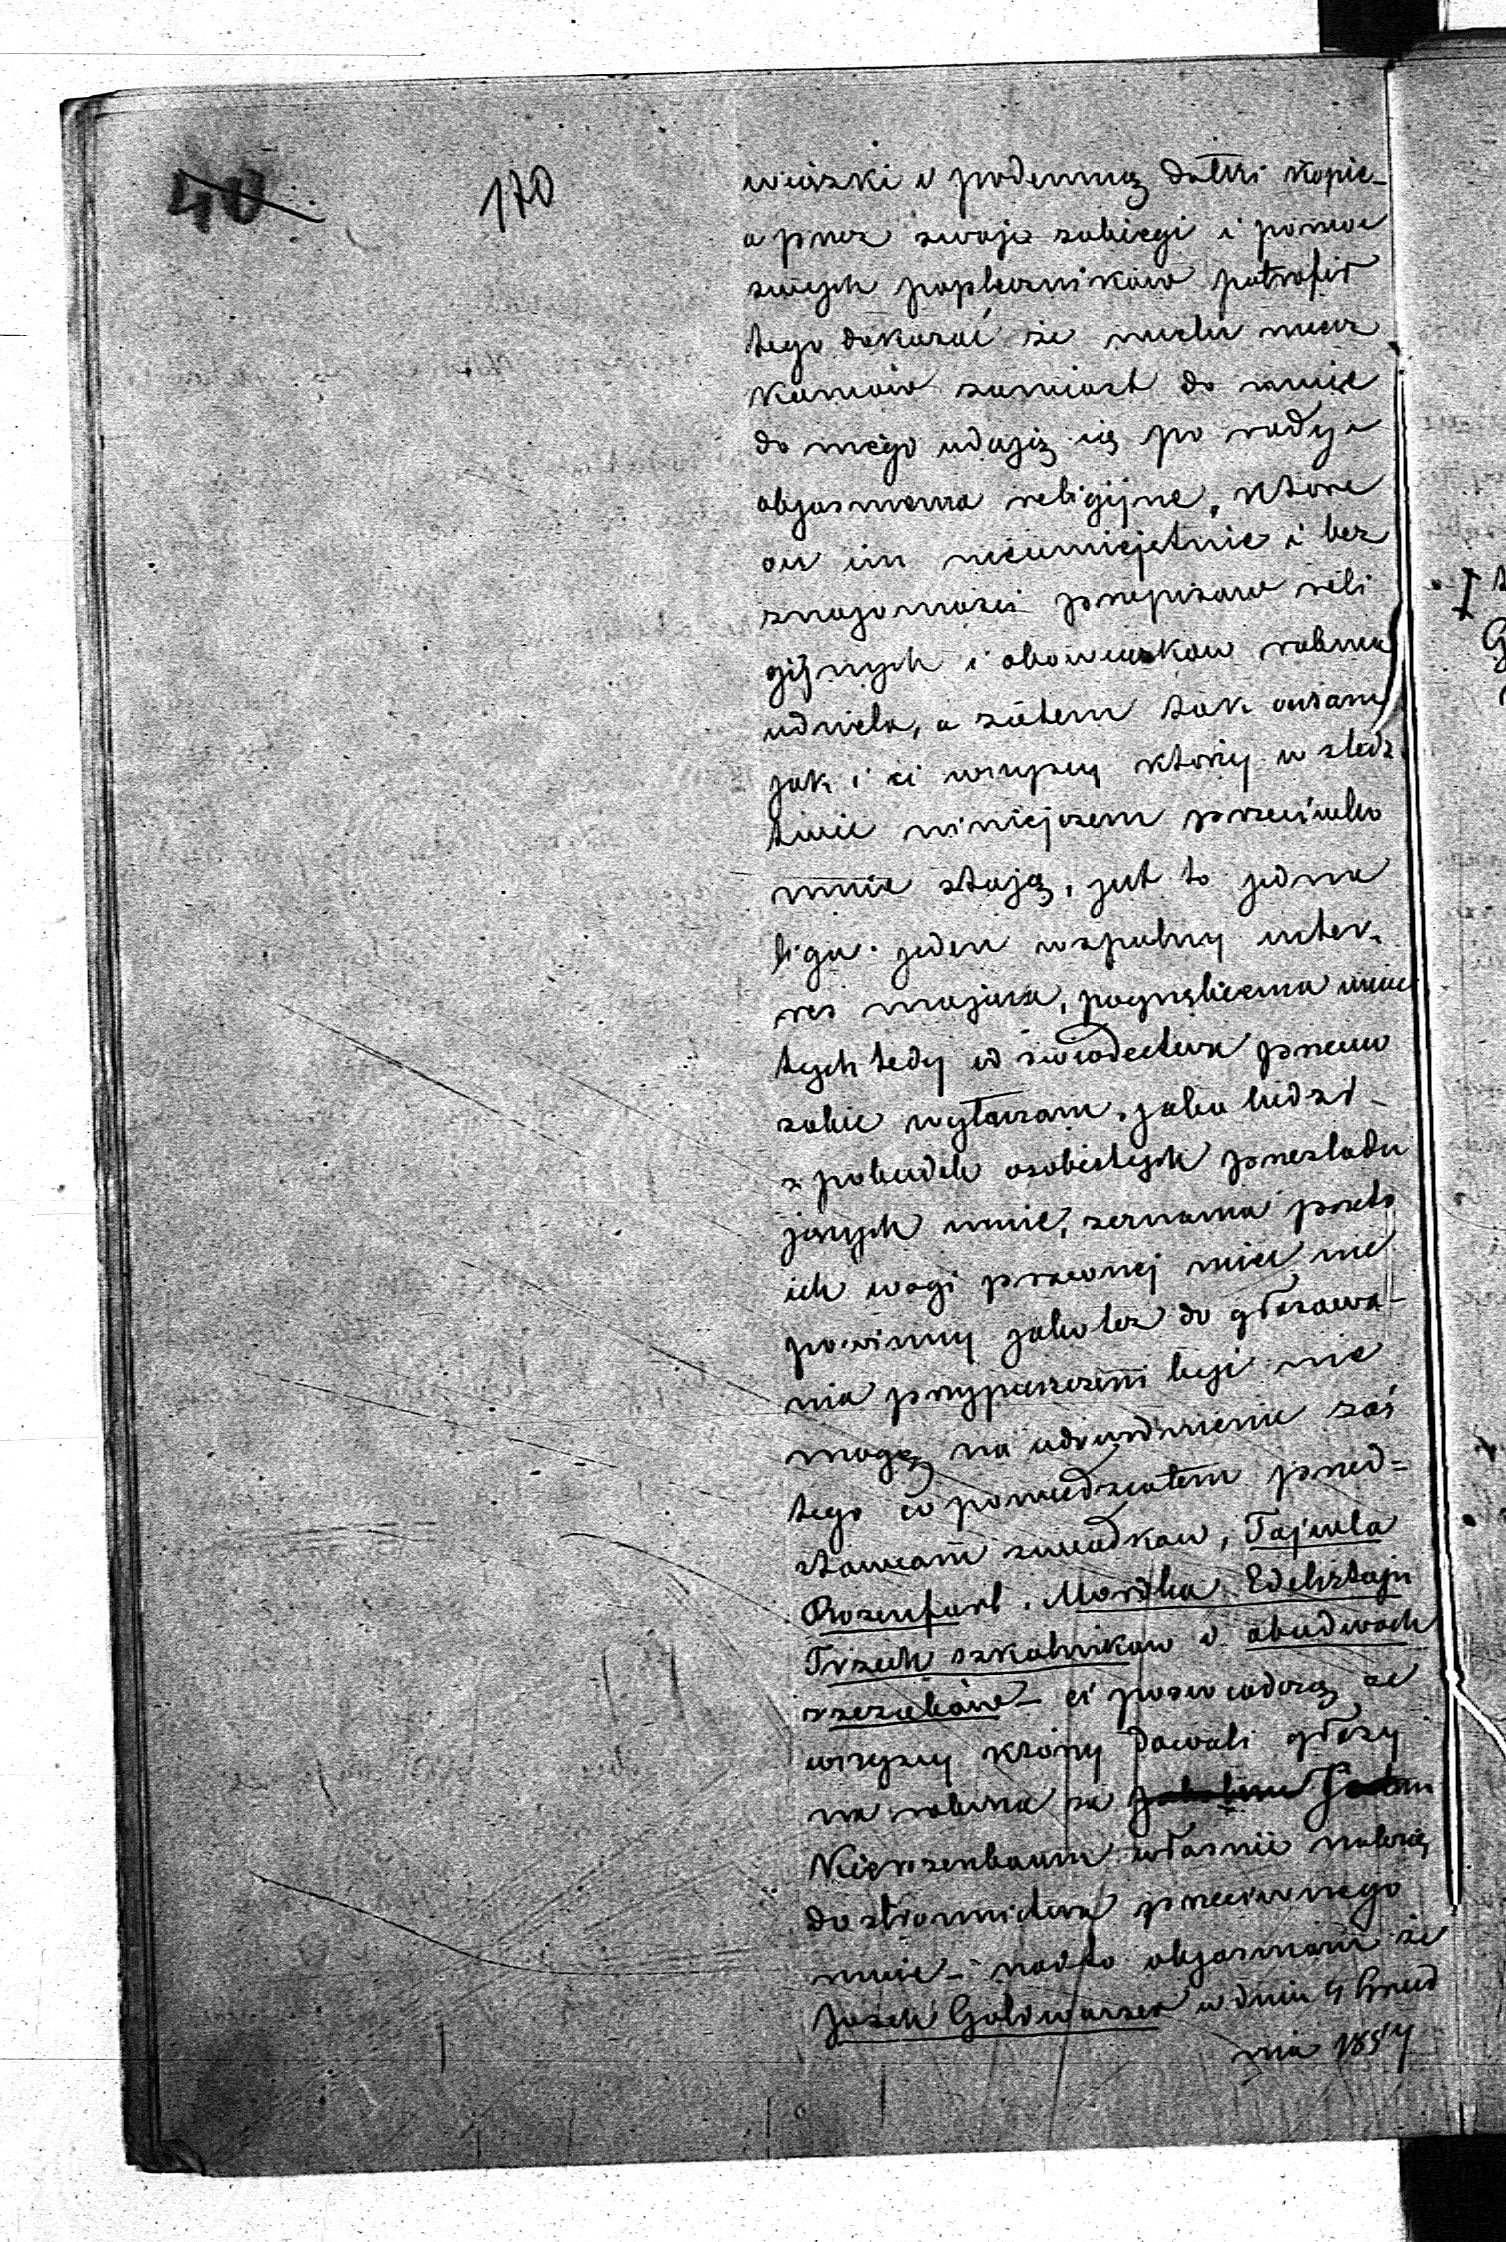 40 170
wiązki i podemną dołki kopie_
a przez swoje zabiegi i pomoc
swych popleczników potrafił
tego dokazać że wielu miesz
kancow zamiast do mnie
do niego udają się po rady i
objasnienia religijne, ktore
on im nieumiejetnie i bez
znajomosci przepisow reli
gijnych i obowiązkow rabina
udziela, a zatem tak on sam
jak i ci wszyscy którzy w sledz
twie niniejszem przeciwko
mnie stają, jest to jedna
liga. jeden wspolny inter,
res mająca, pognębienia mnie
tych tedy od swiadectwa przeciw
sobie wyłączam. jako ludzi _
z pobudek osobistych przesladu
jących mnie, zeznania przeto
ich wagi prawnej mieć nie
powinny jako też do głosowa-
nia przypuszczeni być nie
mogą, na udowodnienie zaś
tego co powiedziałem przed=
stawiam swiadkow, Tajwla
Rozenfarb. Mordka Edelsztajn
Trzech szkolnikow i obudwoch
rzezaków _ ci poswiadczą że
wszyscy którzy dawali głosy
na rabina za
Kierszenbaum własnie należą
do stronnictwa przeciwnego
mnie _ nadto objasniam że
Josek Goldwasser w dniu 4 Grud
nia 1857